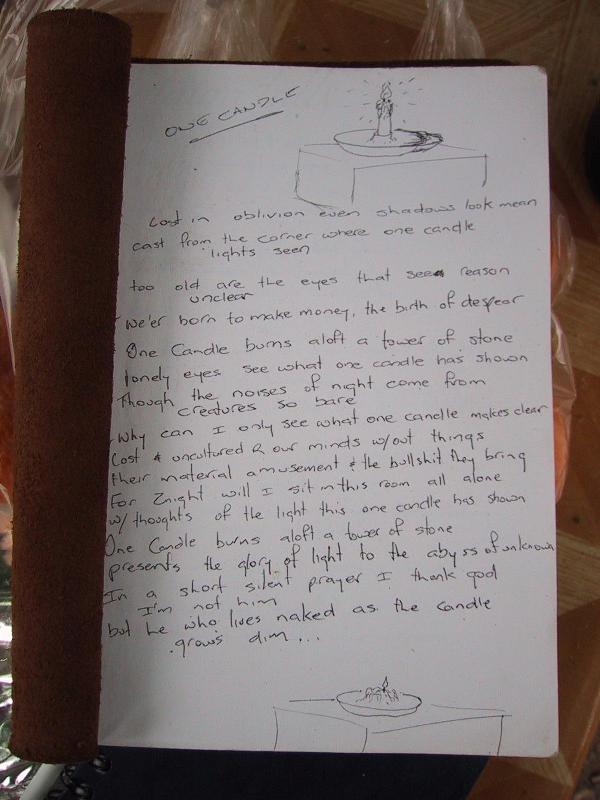 ONE CANDLE
Lost in oblivion even shadows look mean
cast from the corner where one candle
lights seen
too old are the eyes that see reason
unclear
we'er born to make money, the birth of despear
One Candle burns aloft a tower of stone
lonely eyes see what one candle has shown
Though the noises of night come from
creatures so bare
why can I only see what one candle makes clear
Lost & uncultured R our minds w/out things
their material amusement & the bullshit they bring
For 2night will I sit in this room all alone
w/ thoughts of the light this one candle has shown
One Candle burns aloft a tower of stone
presents the glory of light to the abyss of unknown
In a short silent prayer I thank god
I'm not him
but he who lives naked as the candle
grows dim...